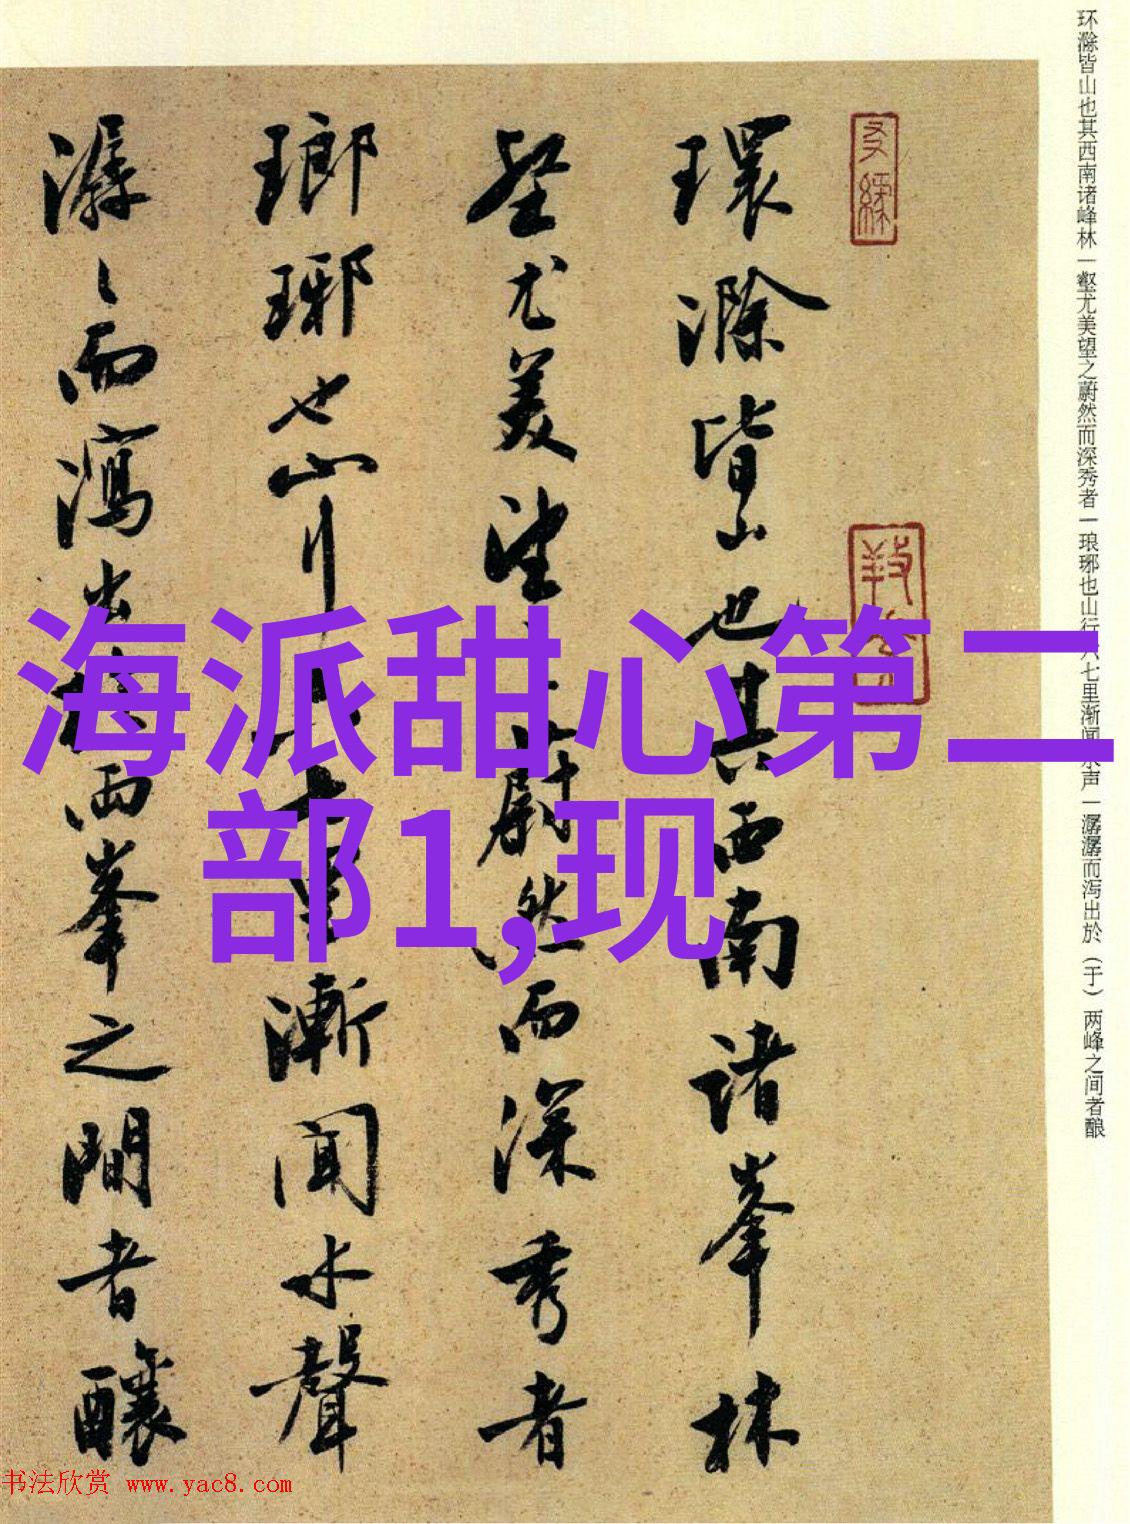 环滁皆山也其西南诸峰林一壑尤美望之蔚然而深秀者一琅琊也山行六七里渐闻水声一潺潺而泻出於（于）两峰之间者酿
環滁皆山也其西南诸峯林
壑尤美望之蔚然而深秀者
瑯琊也山行六七里漸闻水聲
潺〻而瀉出於两峯之間者釀
海派甜心第二
部1,现
书法欣赏 www.yac8.com